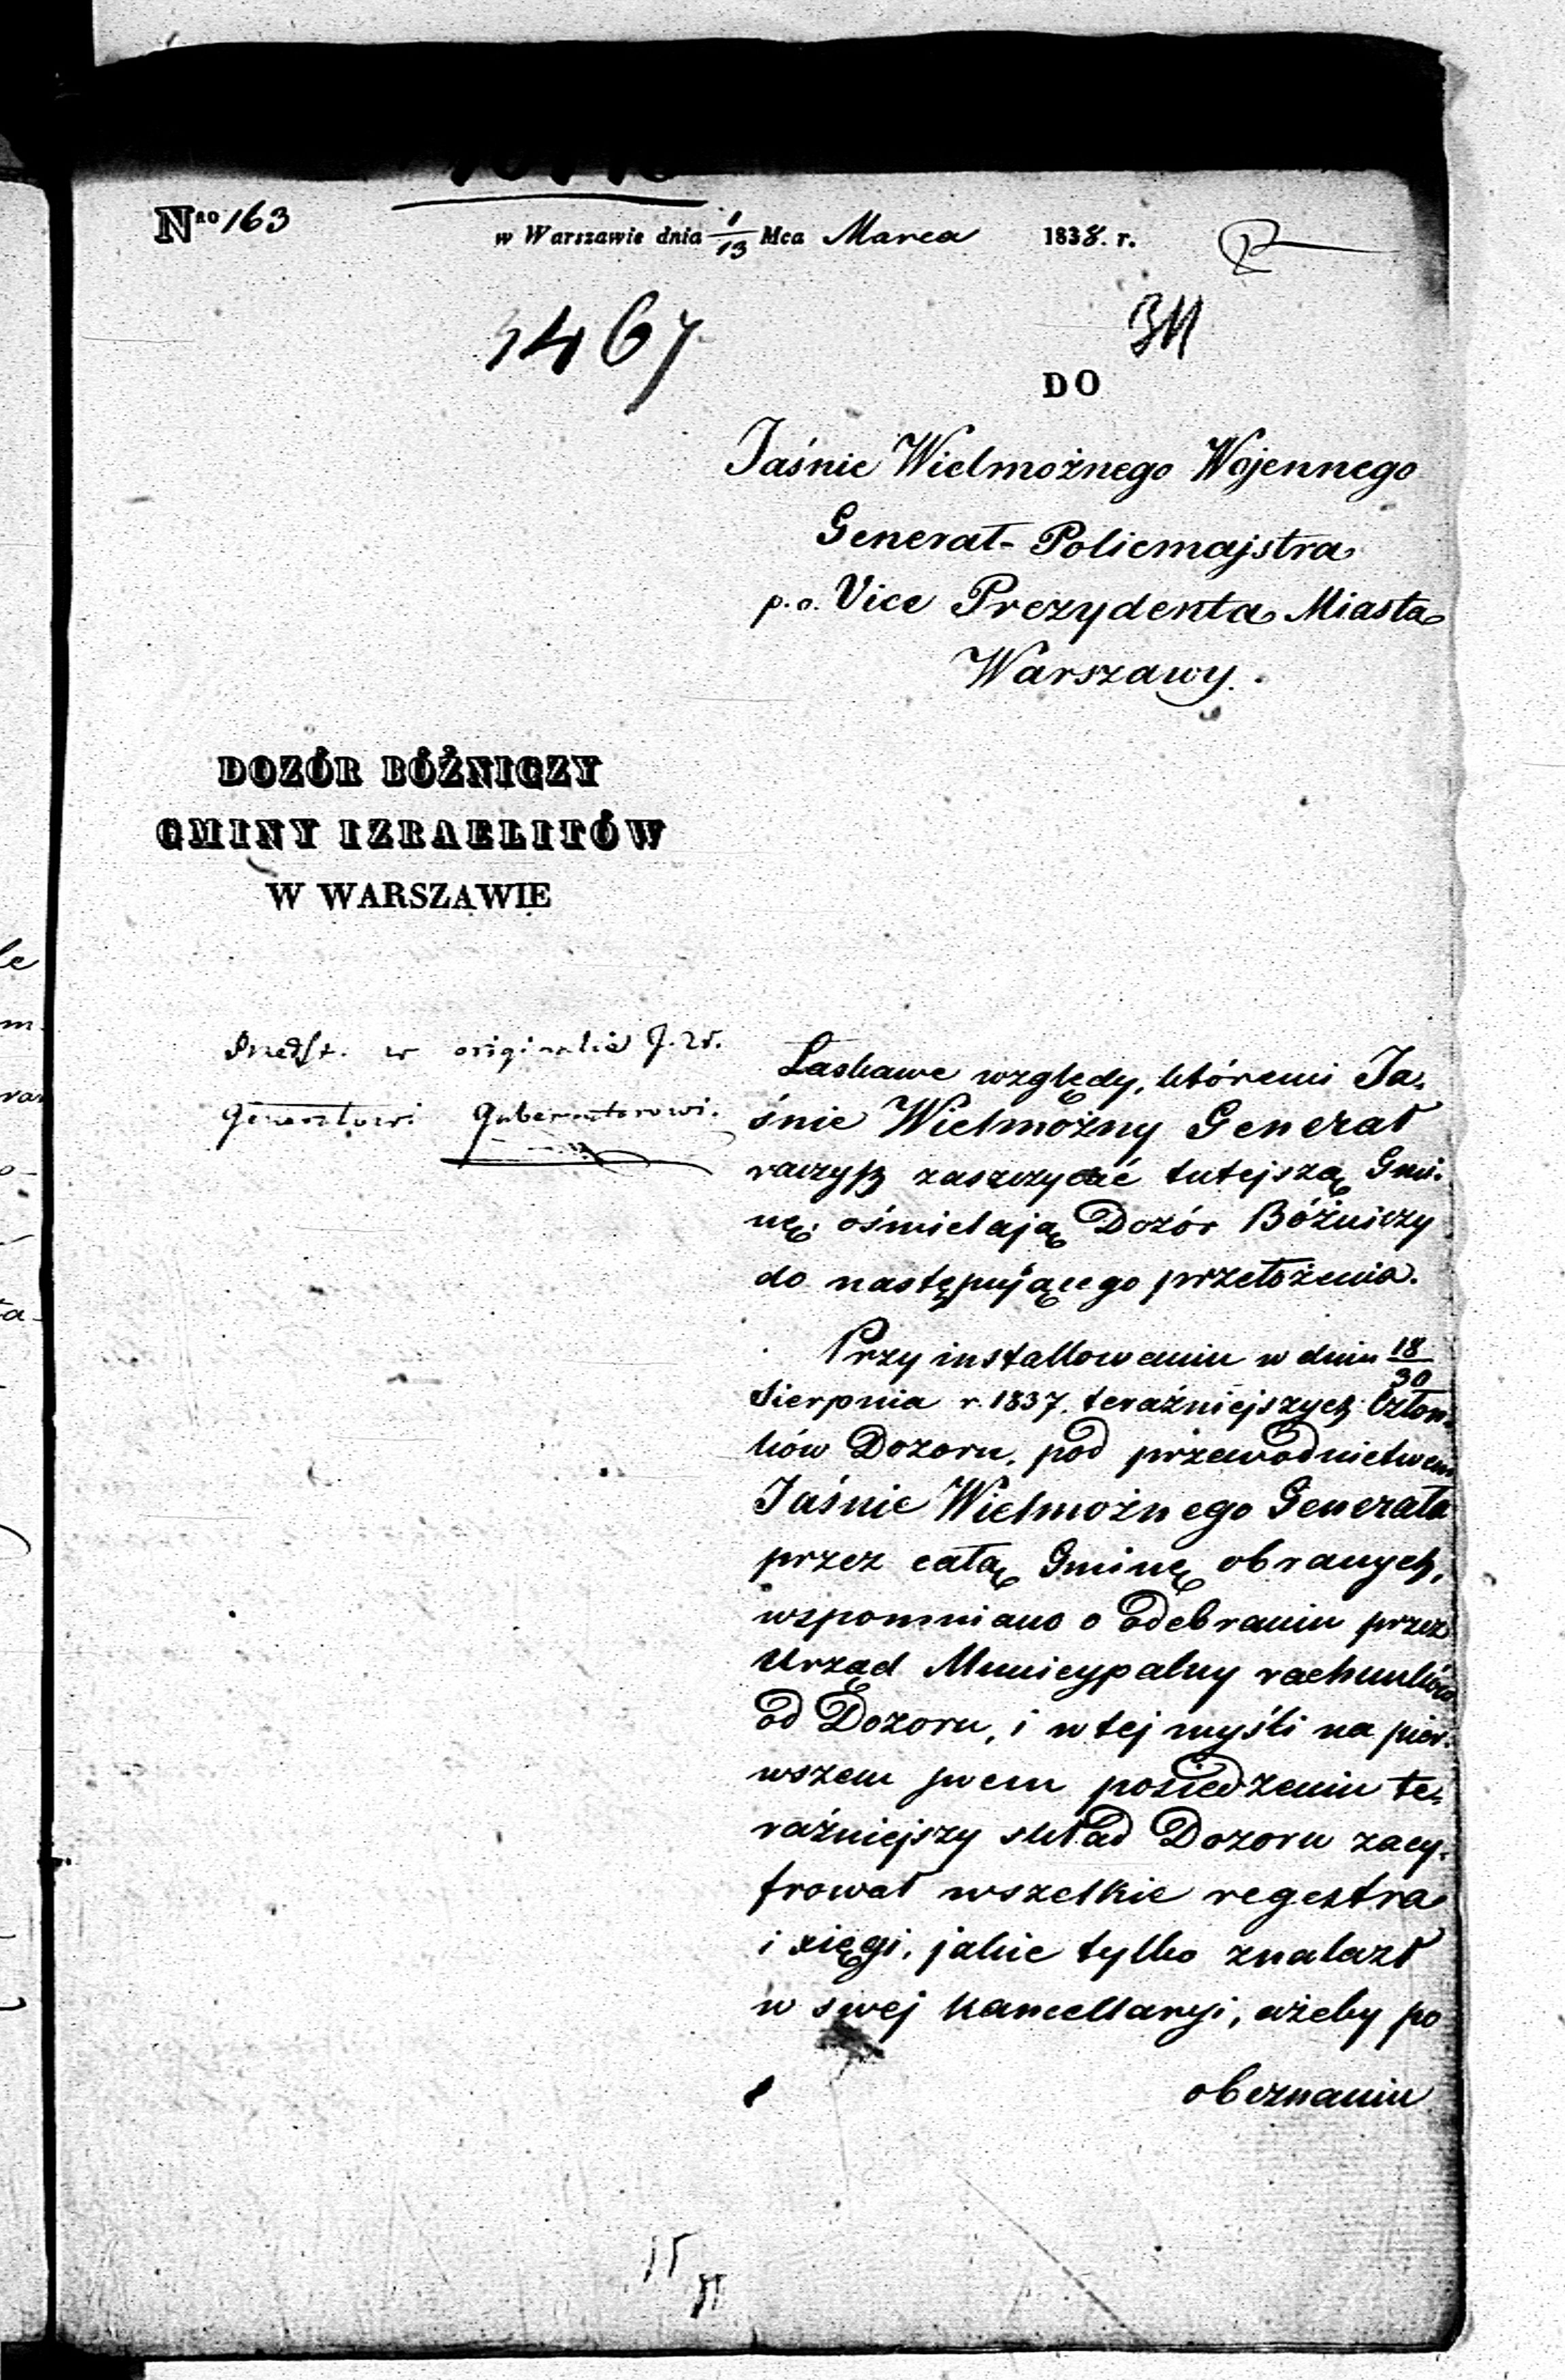 Nro 163
w Warszawie dnia 1/13 Mca Marca 1838. r.
3467
DO
Jaśnie Wielmożnego Wojennego
Generał-Policmajstra
p.o. Vice Prezydenta Miasta
Warszawy.
DOZÓR BÓŻNICZY
GMINY IZRAELITÓW
W WARSZAWIE
w originalie J. W.
Generałowi Gubernatorowi.
Łaskawe względy, któremi Ja-
śnie Wielmożny Generał
raczysz zaszczycać tutejszą Gmi-
nę, ośmielają Dozór Bóżniczy
do następującego przełożenia.
Przy installowaniu w dniu 18/30
Sierpnia r. 1837. teraźniejszych Człon-
ków Dozoru, pod przewodnictwem
Jaśnie Wielmożnego Generała
przez całą Gminę obranych,
wspomniano o odebraniu przez
Urząd Municypalny rachunków
od Dozoru, i w tej myśli na pier-
wszem swem posiedzeniu te-
raźniejszy skład Dozoru zacy-
frował wszelkie regestra
i xięgi, jakie tylko znalazł
w swej Kancellaryi, ażeby po
obeznaniu